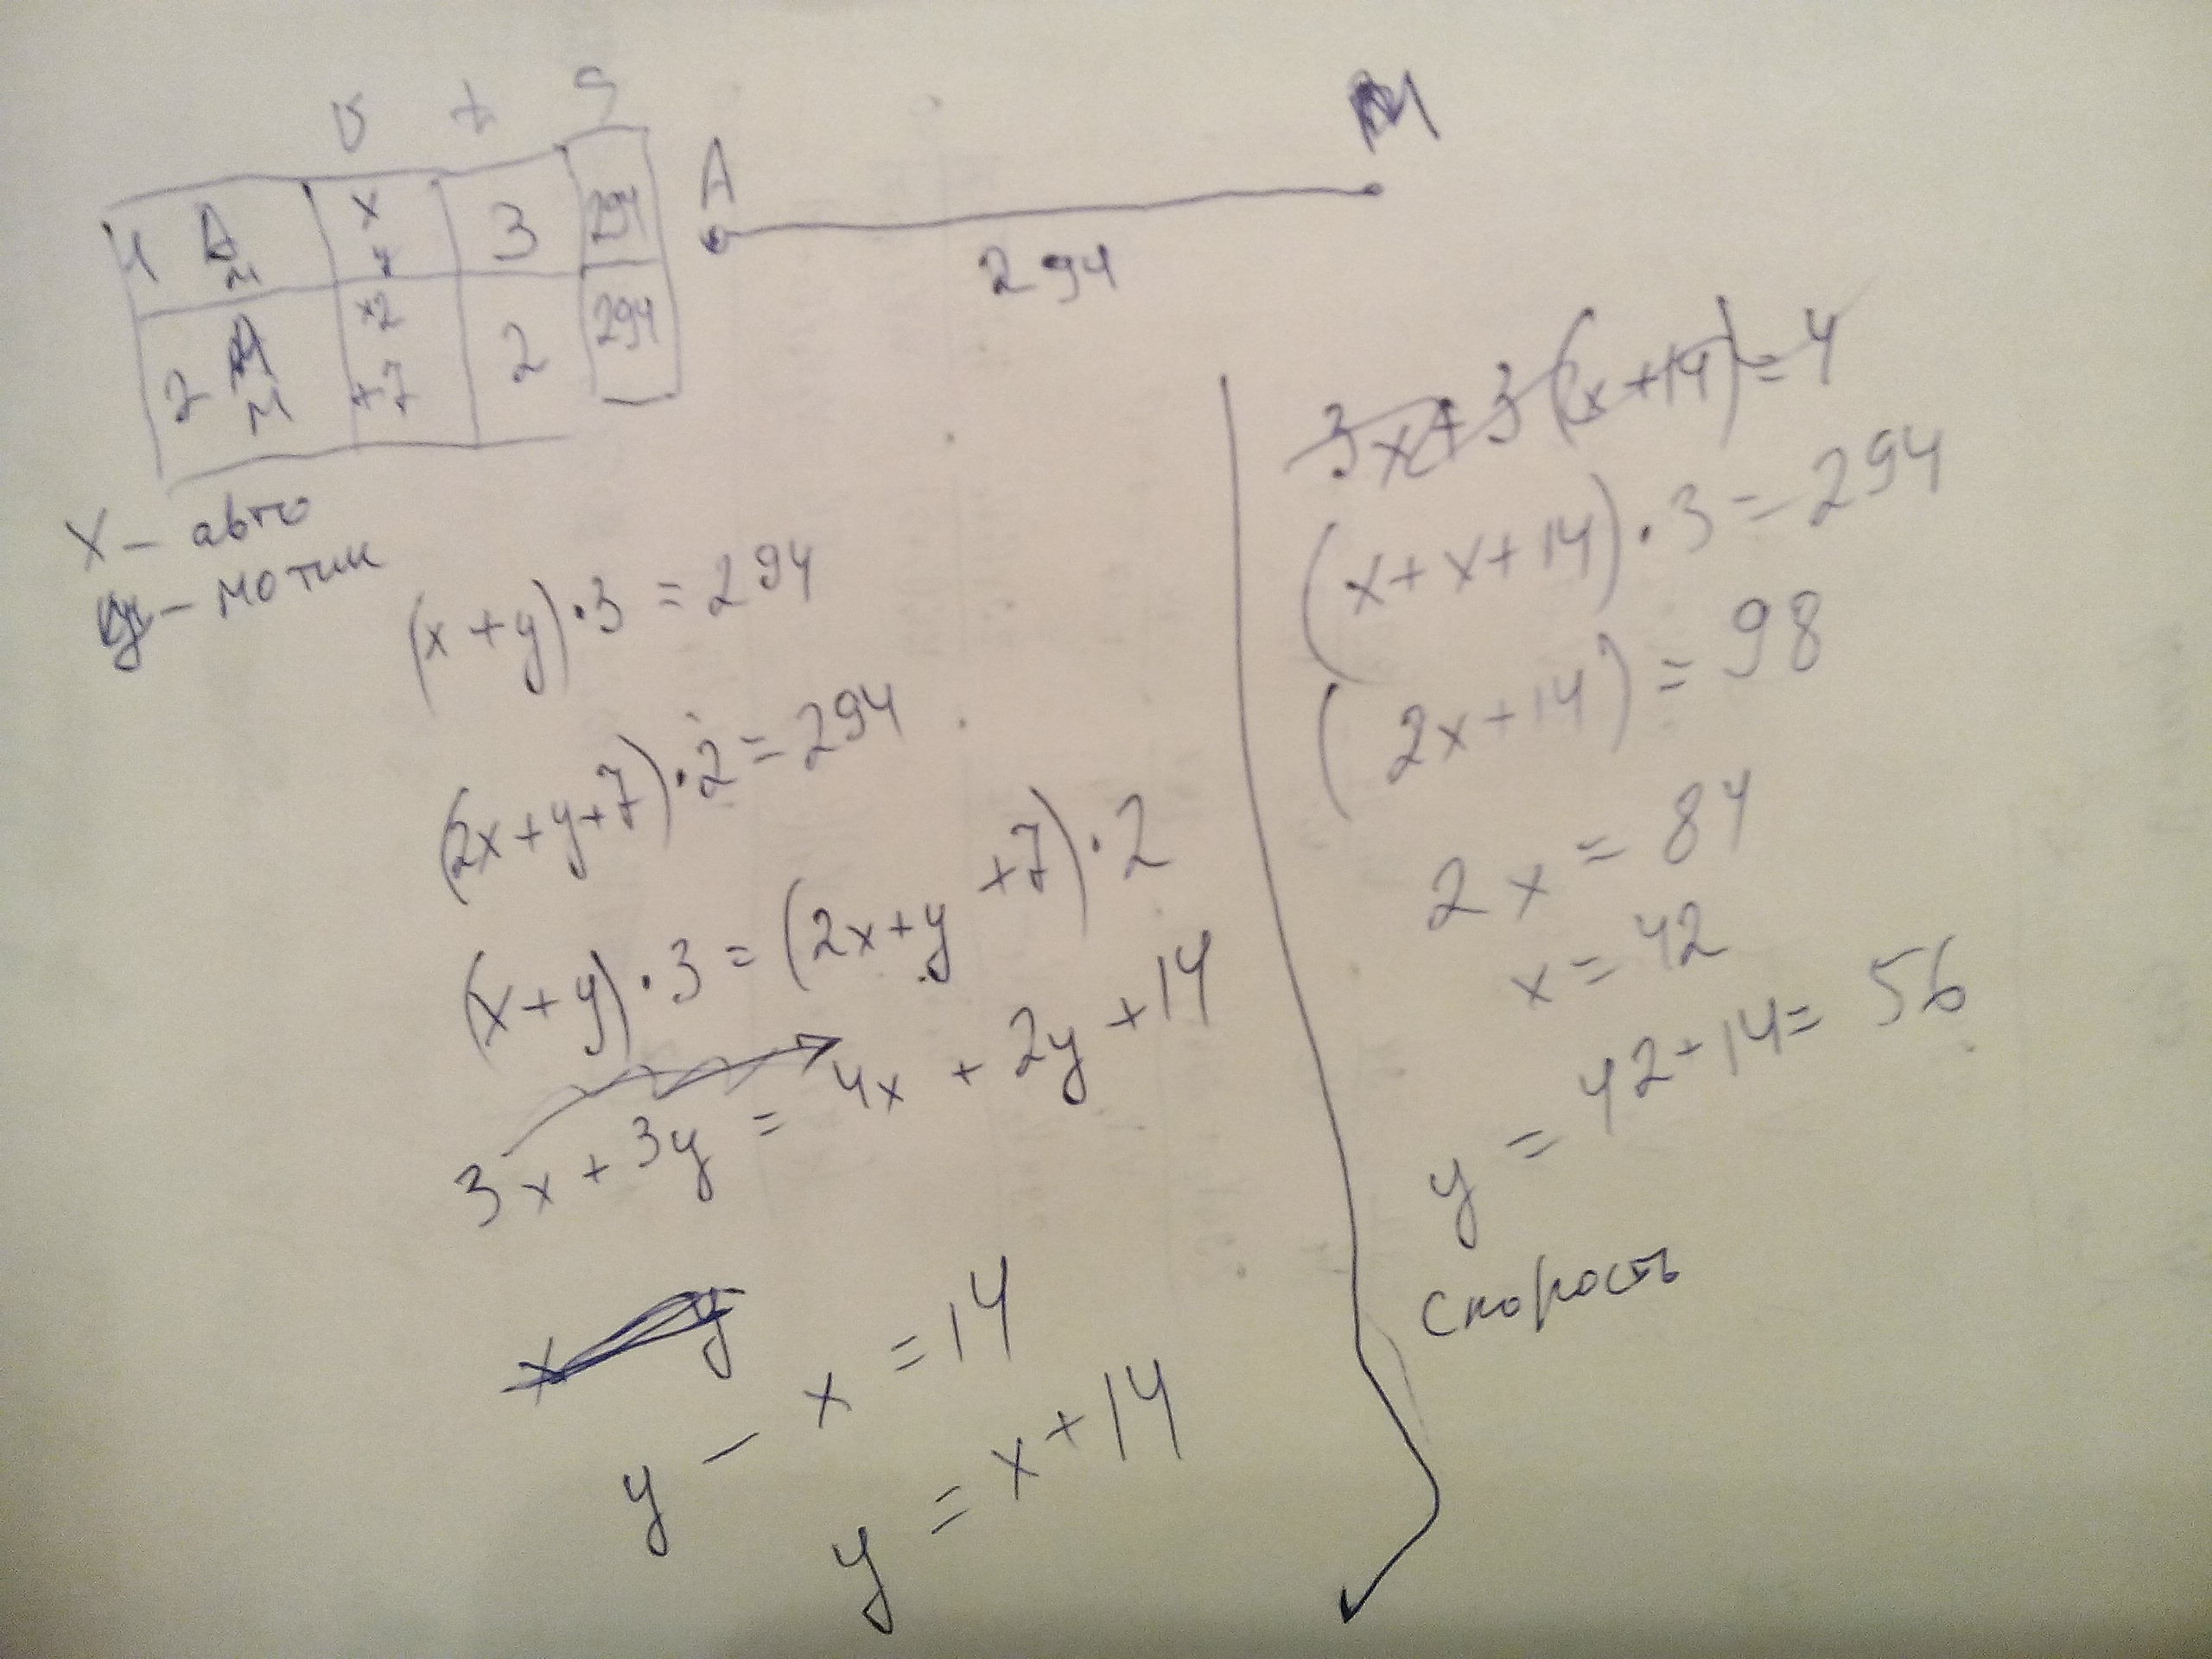 v t S
1 A x 3 294
м y
2 A x2 2 294
м +7
A М
294
x – авто
y – мотик
(x + y) · 3 = 294
(2x + y + 7) · 2 = 294
(x + y) · 3 = (2x + y + 7) · 2
3x + 3y = 4x + 2y + 14
x y
y – x = 14
y = x + 14
3x + 3(x + 14) = 4
(x + x + 14) · 3 = 294
(2x + 14) = 98
2x = 84
x = 42
y = 42 + 14 = 56
скорость